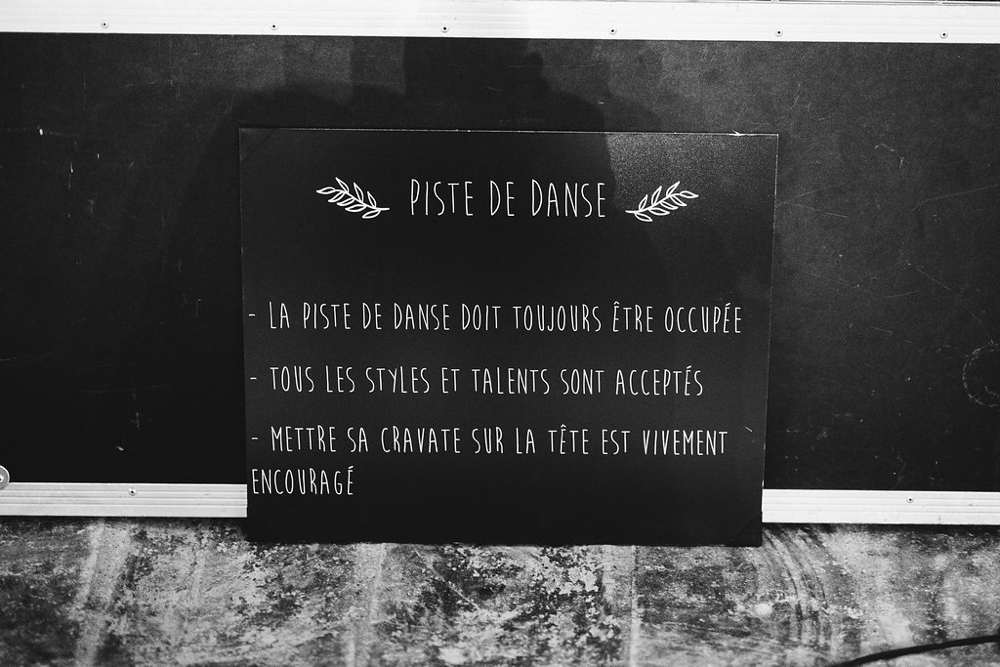 PISTE DE DANSE
- LA PISTE DE DANSE DOIT TOUJOURS ÊTRE OCCUPÉE
- TOUS LES STYLES ET TALENTS SONT ACCEPTÉS
- METTRE SA CRAVATE SUR LA TÊTE EST VIVEMENT
ENCOURAGÉ